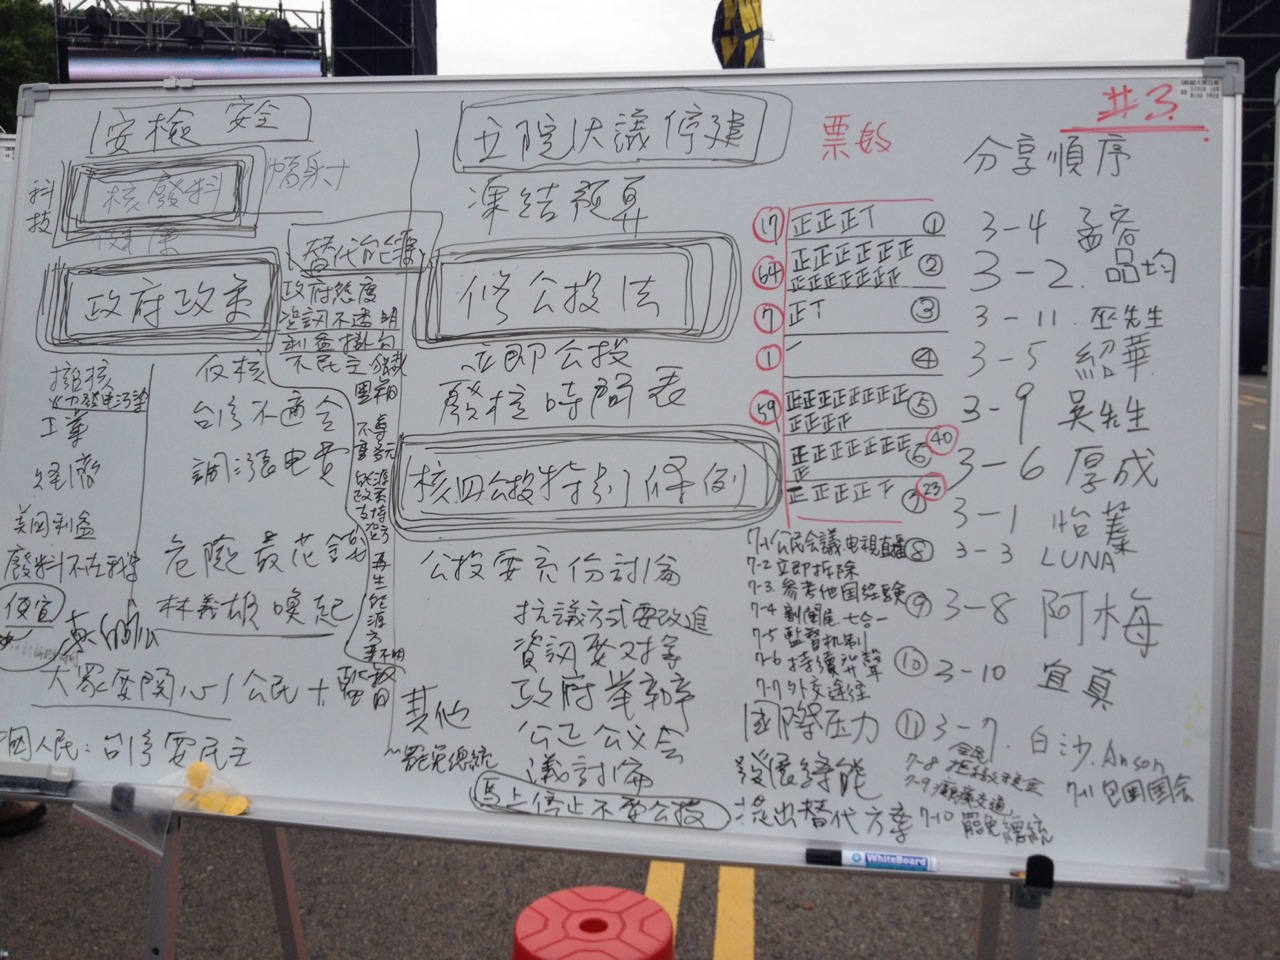 #3.
安檢 安全
科技
核廢料
輻射
健康
替代能源
政府政策
政府態度
資訊不透明
利益掛勾
不民主
擁核
火力發電污染
工業
經濟
美國利益
廢料不在我家
便宜
反核
台灣不適合
調漲電費
危險最花錢
林義雄喚起
不尊重多元
能源政策
再生能源方案不明
大家要關心/公民+
國人民:台灣要民主
立院決議停建
凍結預算
修公投法
立即公投
廢核時間表
核四公投特別條例
公投要充份討論
抗議方式要改進
資訊要對等
政府举辦
公正公议会
議討論
馬上停止不要公投
其他
~罷免總統
票数
⑰ 正正正丅 ①
64 正正正正正正正正正正正正 ②
⑦ 正丅 ③
① 一 ④
59 正正正正正正正正正正正 ⑤
正正正正正正正正 ⑥ 40
正正正正下 ⑦ 23
7-1 公民会議电視直播
7-2 立即拆除
7-3. 參考他国经驗
7-4 割闌尾 七合一
7-5 監督机制
7-6 持續发聲
7-7 外交連结
國際压力
發展綠能
提出替代方案
分享順序
3-4 孟容
3-2. 品均
3-11. 巫先生
3-5 紹華
3-9 吳先生
3-6 厚成
3-1 怡蓁
⑧ 3-3 LUNA
⑨ 3-8 阿梅
⑩ 3-10 宜真
⑪ 3-7. 白沙. Anson
7-8 全民
7-9 癱瘓交通
7-10 罷免總統
7-11 包圍国会
WhiteBoard